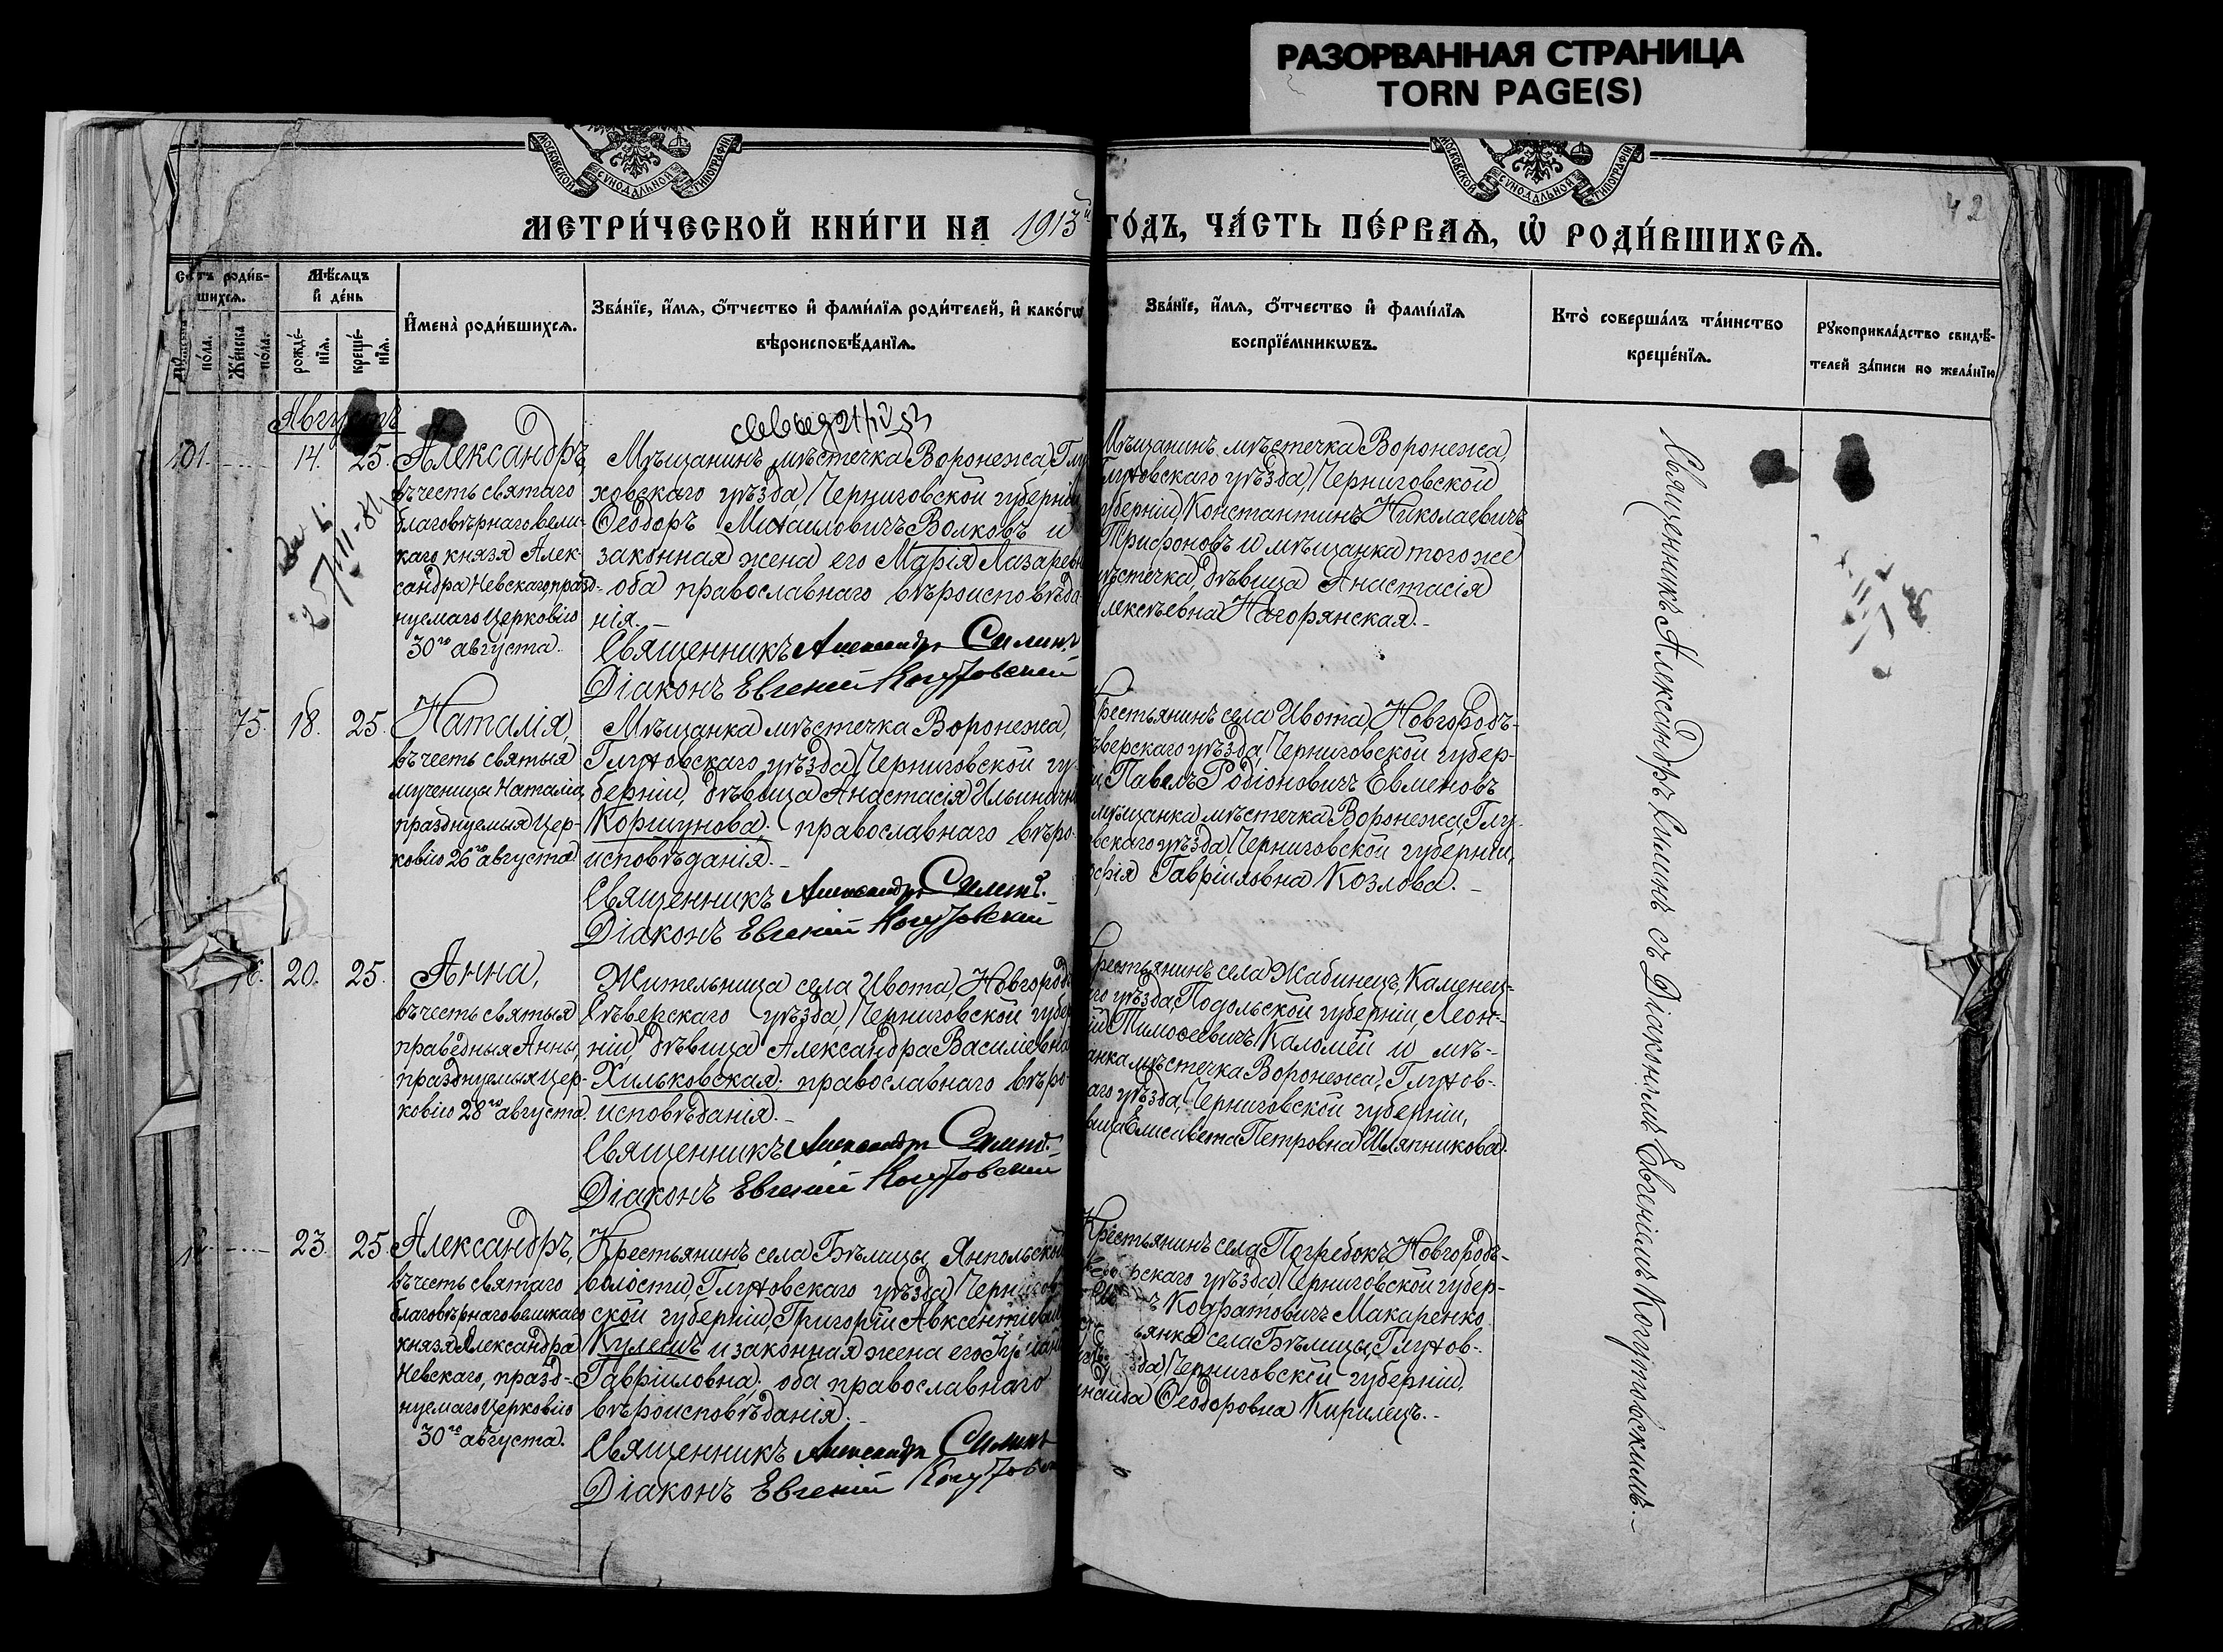 РАЗОРВАННАЯ СТРАНИЦА
TORN PAGE(S)
МОСКОВСКОЙ СУНОДАЛЬНОЙ ТИПОГРАФІИ
МОСКОВСКОЙ СУНОДАЛЬНОЙ ТИПОГРАФІИ
42
МЕТРИ́ЧЕСКОЙ КНИ́ГИ НА 1913й
ГО́ДЪ, ЧА́СТЬ ПЕ́РВАѦ, Ѡ҆ РОДИ́ВШИХСѦ.
родив-
шихсѧ.
пола.
Же́нска
пола.
Мѣ́сѧцъ
и҆ де́нь
рожде́-
нїѧ.
креще́-
нїѧ.
И҆мена̀ роди́вшихсѧ.
Зва́нїе, и҆́мѧ, ѻ҆́тчество и҆ фами́лїѧ роди́телей, и҆ како́гѡ
вѣроисповѣ́данїѧ.
Зва́нїе, и҆́мѧ, ѻ҆́тчество и҆ фами́лїѧ
воспрїе́мникѡвъ.
Кто̀ соверша́лъ та́инство
креще́нїѧ.
Рꙋкоприкла́дство свидѣ́-
телей за́писи по жела́нїю
Августъ
101.
14.
25.
Александръ
въ честь святаго
благовѣрнаго вели-
каго князя Алек-
сандра Невскаго, празд-
нуемаго Церковію
30го августа.
Мѣщанинъ мѣстечка Воронежа, Глу
ховскаго уѣзда, Черниговской губерніи
Ѳеодоръ Михаиловичъ Волковъ и
законная жена его Марія Лазаревн
оба православнаго вѣроисповѣда-
нія.
Священникъ Александръ Силинъ
Діаконъ Евгеній Когутовский
Мѣщанинъ мѣстечка Воронежа,
Глуховскаго уѣзда, Черниговской
губерніи, Константинъ Николаевичъ
Трифоновъ и мѣщанка того же
мѣстечка, дѣвица Анастасія
лексѣевна Нагорянская.
75.
18.
25.
Наталія,
въ честь святыя
мученицы Наталіи,
празднуемыя Цер-
ковію 26го августа
Мѣщанка мѣстечка Воронежа,
Глуховскаго уѣзда, Черниговской гу-
берніи, дѣвица Анастасія Ильинична
Коршунова; православнаго вѣро-
исповѣданія.
Священникъ Александръ Силинъ.
Діаконъ Евгеній Когутовский
Крестьянинъ села Ивота, Новгородъ-
ѣверскаго уѣзда, Черниговской губер-
и, Павелъ Родіоновичъ Евменовъ
мѣщанка мѣстечка Воронежа, Глу-
вскаго уѣзда, Черниговской губерніи,
офія Гавріиловна Козлова.
20.
25.
Анна,
въ честь святыя
праведныя Анны,
празднуемыя Цер-
ковію 28го августа.
Жительница села Ивота, Новгородъ
Сѣверскаго уѣзда, Черниговской губер
ніи, дѣвица Александра Василіевна
Хильковская; православнаго вѣро-
исповѣданія.
Священникъ Александръ Силинъ.
Діаконъ Евгеній Когутовский
Крестьянинъ села Жабинецъ, Каменец-
го уѣзда, Подольской губерніи, Леон-
ій Тимоѳеевичъ Каломей и мѣ-
анка мѣстечка Воронежа, Глухов-
аго уѣзда, Черниговской губерніи,
вица Елисавета Петровна Шляпникова.
23.
25
Александръ,
въ честь святаго
благовѣрнаго великаго
князя Александра
Невскаго, празд-
нуемаго Церковію
30го августа.
Крестьянинъ села Бѣлицы, Янпольской
волости, Глуховскаго уѣзда, Чернигов
ской губерніи, Григорій Авксентіевичъ
Кулешъ и законная жена его
Гавріиловна; оба православнаго
вѣроисповѣданія.
Священникъ Александръ Силинъ
Діаконъ Евгеній Когутовс
Крестьянинъ села Погребокъ, Новгородъ-
рскаго уѣзда, Черниговской губер-
Кодратовичъ Макаренко
ьянка села Бѣлицы, Глухов-
зда, Черниговской губерніи,
инаида Ѳеодоровна Кирилецъ.
Священникъ Александръ Силинъ съ Діакономъ Евгеніемъ Когутовскимъ.